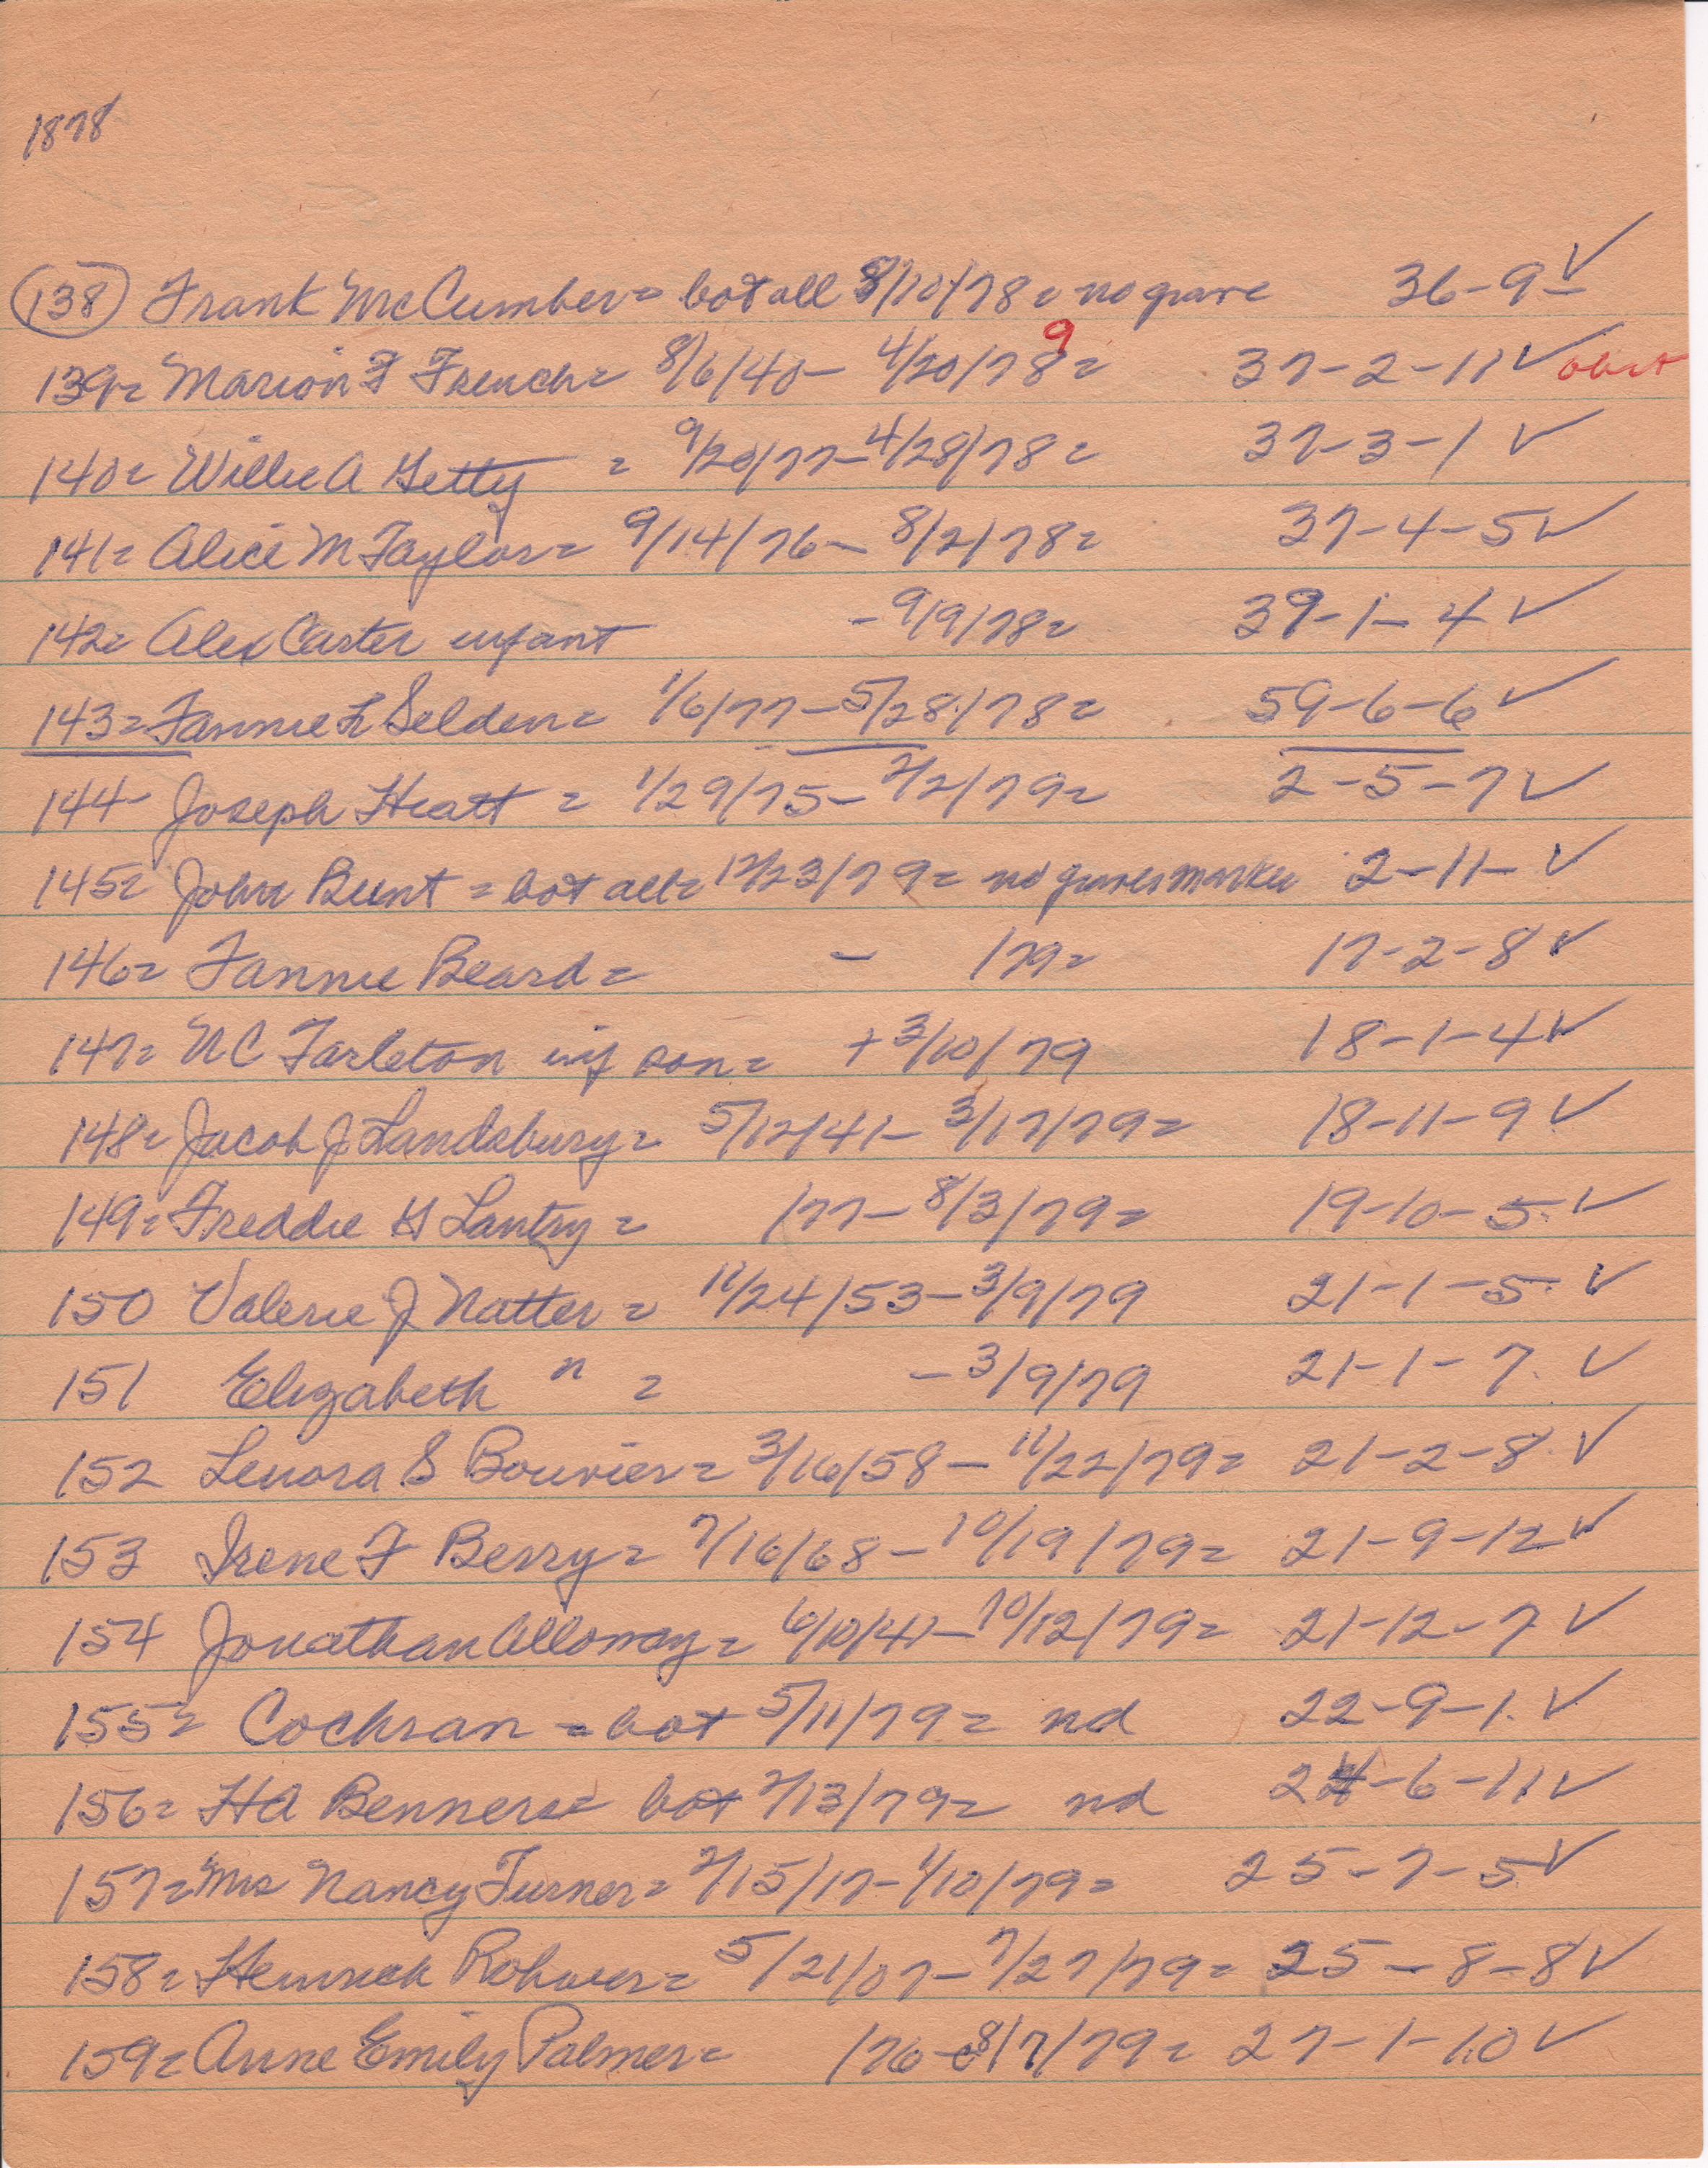 1878
138 Frank McCumber = bot all 8/10/78 = no grave 36-9- ✓
139= Marion F French= 8/6/40- 4/20/78= 9 37-2-11 ✓ obit
140= Willie A Getty = 9/20/77-4/28/78= 37-3-1 ✓
141= Alice M Taylor= 9/14/76- 8/2/78= 37-4-5 ✓
142= Alex Carter infant -9/9/78= 39-1-4 ✓
143= Fannie L Selden= 1/6/77-5/28/78= 59-6-6 ✓
144- Joseph Hiatt = 1/29/75- 2/2/79= 2-5-7 ✓
145= John Bunt = bot all= 12/23/79= no graves marker 2-11- ✓
146= Fannie Beard= - /79= 17-2-8 ✓
147= NC Tarleton inf son= + 3/10/79 18-1-4 ✓
148= Jacob J Landsbury= 5/12/41- 3/17/79= 18-11-9 ✓
149= Freddie G Lantry= /77- 8/3/79= 19-10-5 ✓
150 Valerie J Natter = 11/24/53-3/9/79 21-1-5 ✓
151 Elizabeth " = -3/9/79 21-1-7 ✓
152 Lenora S Bouvier= 3/16/58-11/22/79= 21-2-8 ✓
153 Irene F Berry= 7/16/68-10/19/79= 21-9-12 ✓
154 Jonathan Alloway= 6/10/41-10/12/79= 21-12-7 ✓
155= Cochran = bot 5/11/79= nd 22-9-1 ✓
156= HA Benners= bot 2/13/79= nd 24-6-11 ✓
157= Mrs Nancy Turner= 2/15/17-1/10/79= 25-7-5 ✓
158= Heinrich Rohwer= 5/21/07-7/27/79= 25-8-8 ✓
159= Anne Emily Palmer= /76-8/7/79= 27-1-10 ✓